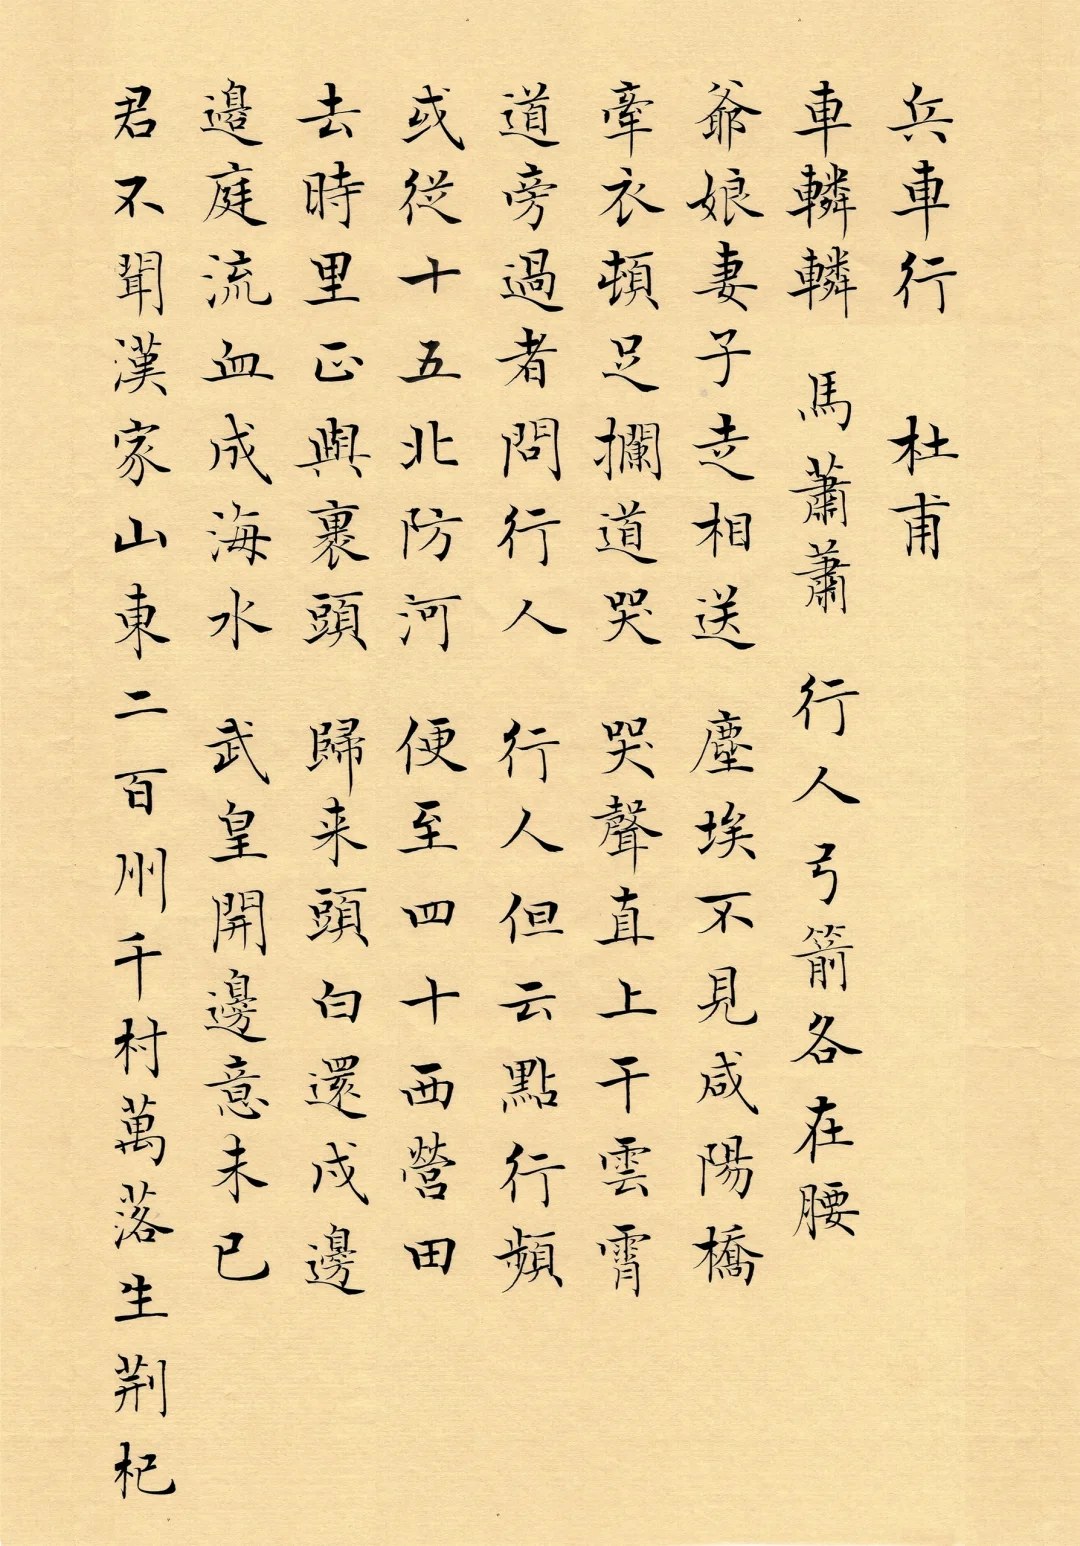 兵車行 杜甫
車轔轔 馬蕭蕭 行人弓箭各在腰
爺娘妻子走相送 塵埃不見咸陽橋
牽衣頓足攔道哭 哭聲直上干雲霄
道旁過者問行人 行人但云點行頻
或從十五北防河 便至四十西營田
去時里正與裹頭 歸来頭白還戍邊
邊庭流血成海水 武皇開邊意未已
君不聞漢家山東二百州千村萬落生荆杞